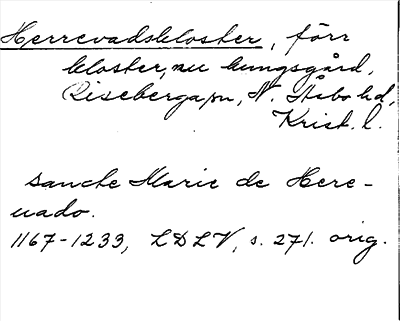 Herrevadskloster, förr
kloster, nu kungsgård,
Risebergapn, N. Åsbo hd,
Krist. l.
sancte Marie de Here-
uado.
1167-1233, LDLV, s. 271. orig.